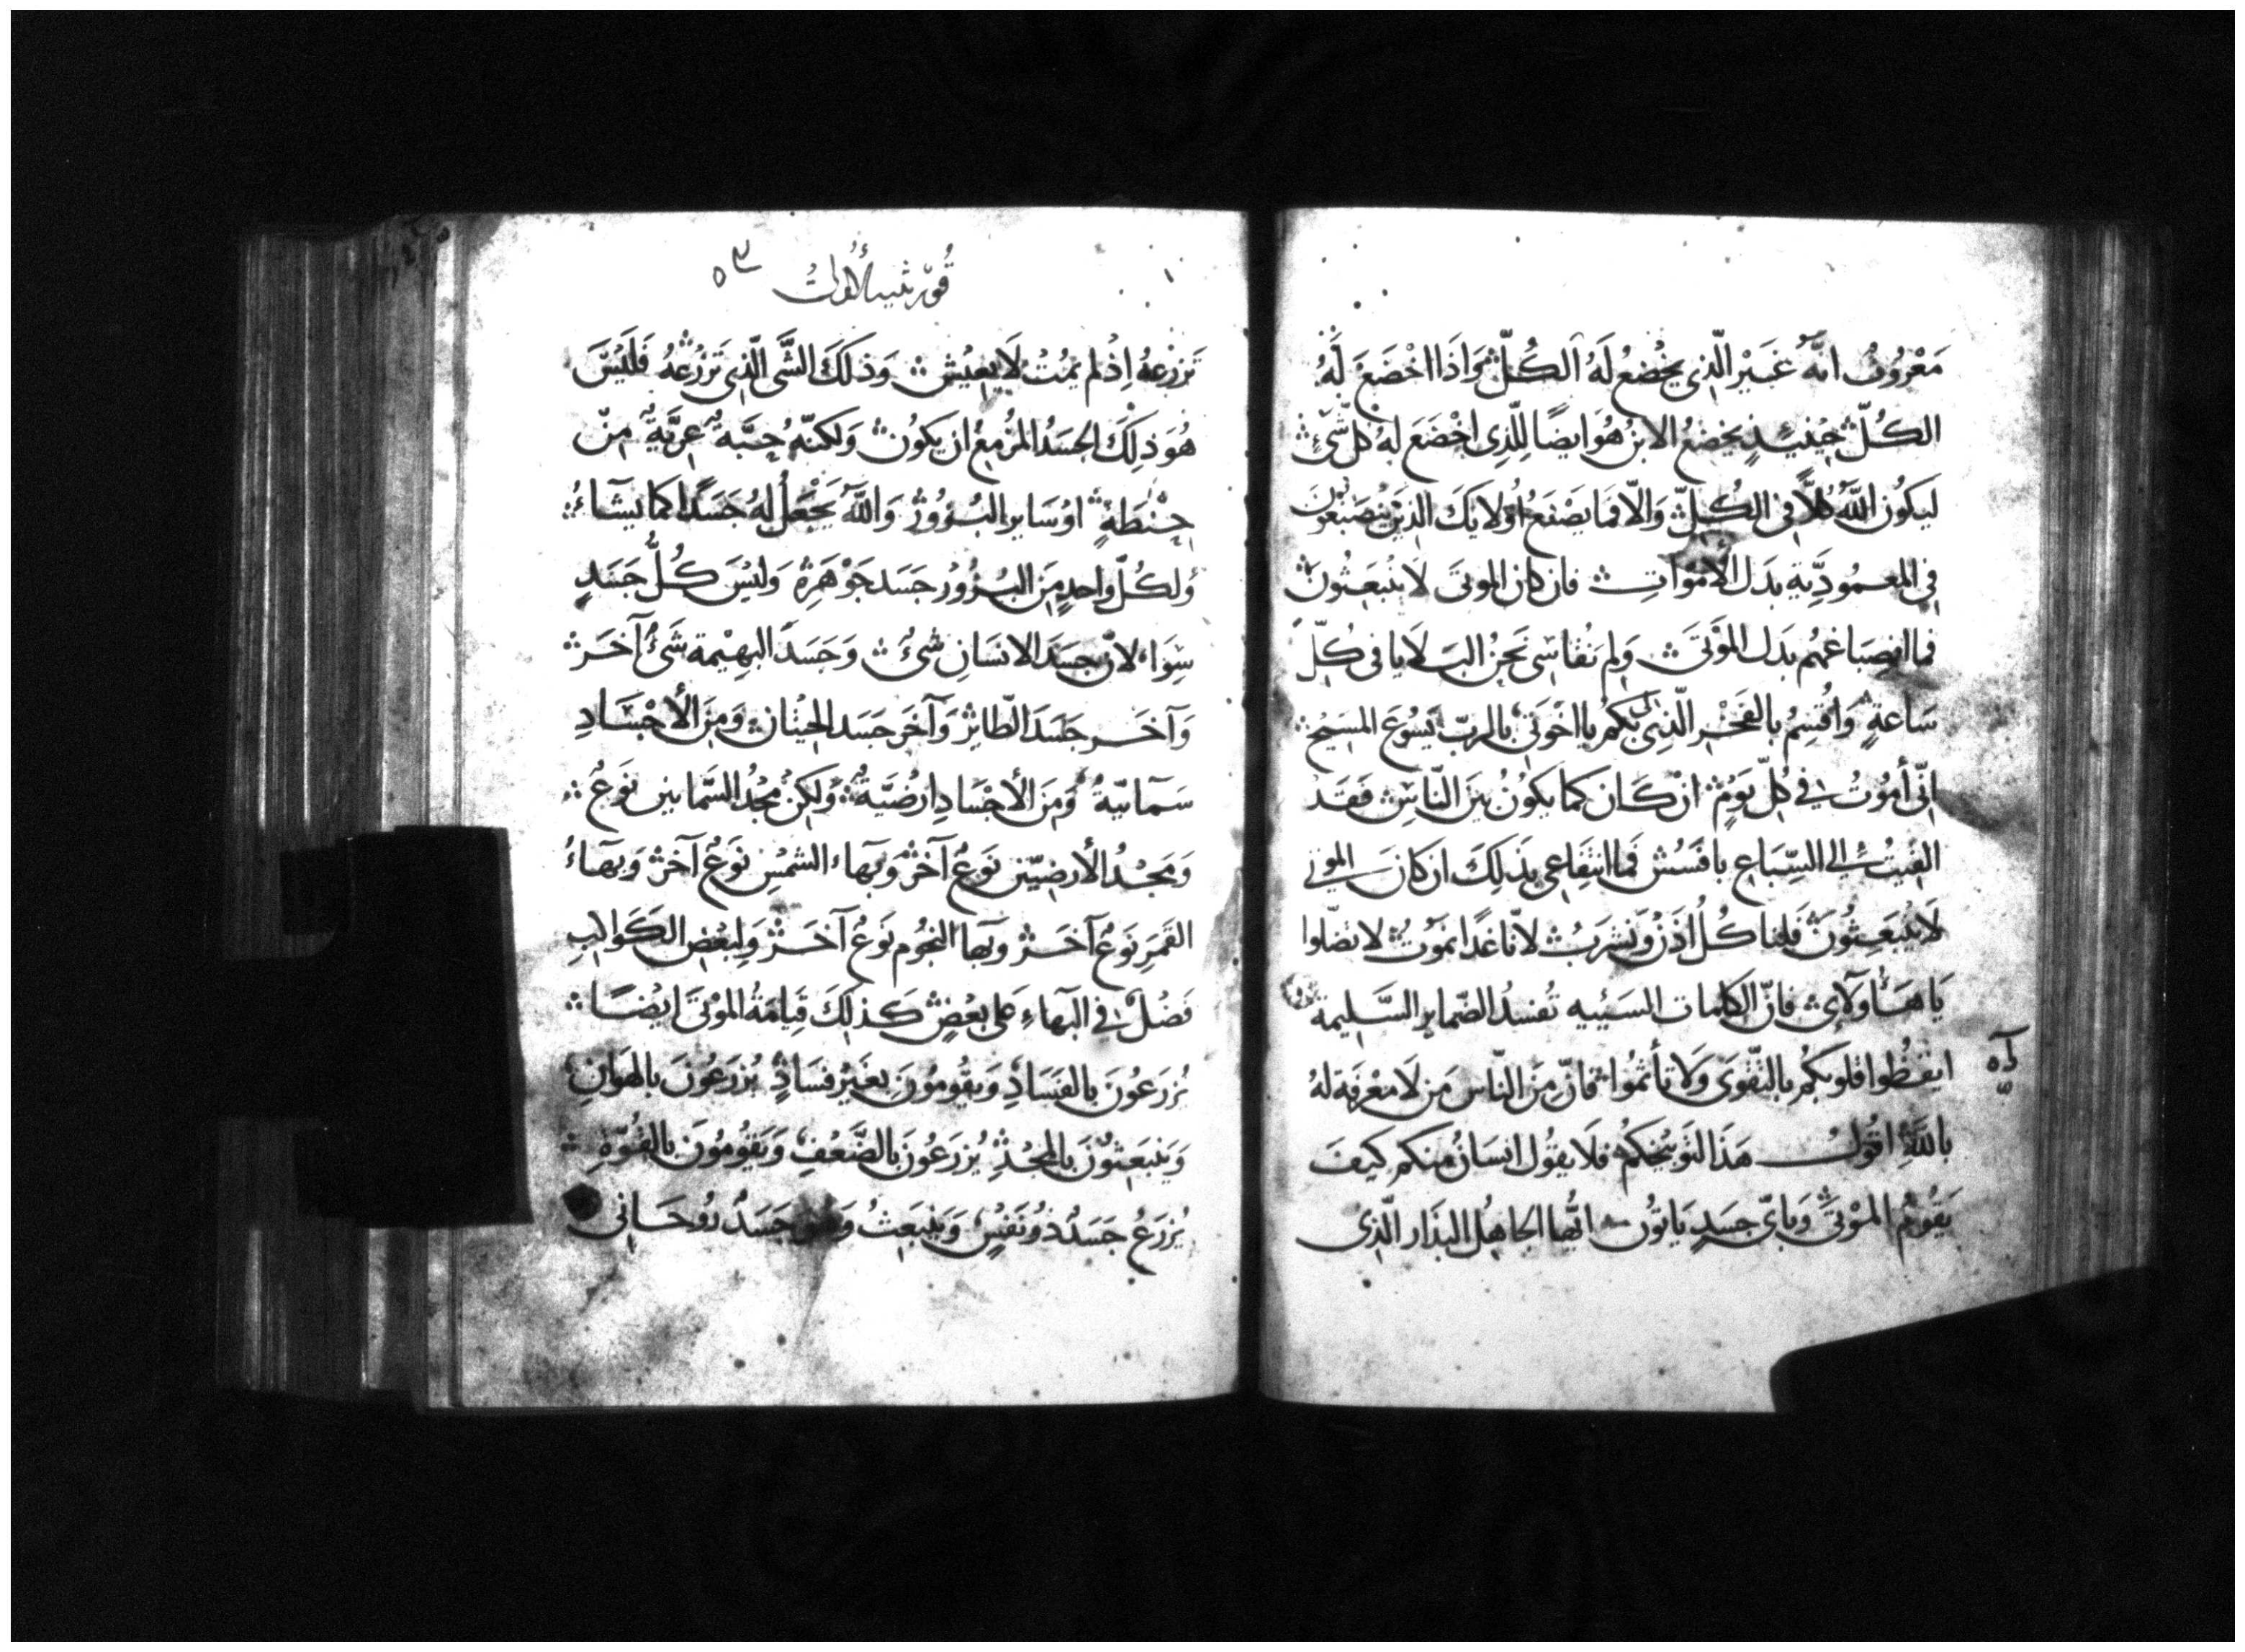 مَعْرُوفٌ انَّهُ غَيْر الَّذِى يخْضعُ لَهُ الكُلّ وَاذَا اخْضَعَ لَهُ
الكُلّ حِينَيِذٍ يخضَعُ الابنُ هُوَ ايضًا لِلَّذِى اخْضَعَ لهُ كل شَىءٍ
لَيكُون اللَّهُ كُلاًّ فِى الكُلِّ وَالّا فمَا يَصْنَعُ اُولايَكَ الذِيْنَ يَنْصَبَغُونَ
فِى المعمُودِيَّةِ بدَل الأَمْوَاتِ فان كان الموتَى لَا يَنْبَعِثُونَ
فما انصِبَاغهُم بدَل المَوْتَى وَلم نُقَاسِى نَحنُ البَلَايا فى كُلِّ
سَاعةٍ وَاُقْسِمُ بالفَخْرِ الّذِى لى بكمُ يا اخْوَتِى بالربِّ يَسُوعَ المسَيْحِ
انّى أمُوْتُ فِى كُلِّ يَوْمٍ ان كَان كما يكُوْنُ بَيْنَ النَّاسِ فَقَد
القيْتُ الى السِّبَاعِ بافَسُسْ فما انتِفَاعى بذلِكَ ان كانَ الموتى
لَا يَنْبَعِثُونَ فَلِنَاكُلُ اذَنْ وَنَشرَبُ لانّا غدًا نموْتُ لا تضلّوا
يَا هَأولَآىِ فانّ الكلمات السَيّيِه تُفسِدُ الضّماير السَّلِيمة
ايقظُوا قلوبكُم بالتّقْوَى وَلا تأثمُوا فانّ مِنَ النّاس مَن لَا معْرفة لهُ
باللَّهِ اقُولُ هَذَا لتَوبيْخكُم فلَا يقُول انسَانٌ منكم كيفَ
يَقومُ المَوْتَى وَباىّ جسَدٍ ياتُون ايُّها الجاهِلُ البذَار الّذى
قُورنثيه الأُولَى ٥٣
تَزرْعهُ اِذْ لم يمُتْ لَا يعِيْش وَذلَكَ الشَّى الّذِى تَزْرَعُهُ فَليْسَ
هُوَ ذلِكَ الجسَدُ المزْمِعُ ان يَكُون وَلكنّه حبَّةٌ عرِيَّةٌ مِنْ
حِنْطَةٍ اوْ سَاير البُزُوْرُ وَاللَّهُ يَجْعَلُ لهُ جَسَدًا كما يشَآءُ
وَلكُلّ واحدٍ مِنَ البُزُوْرُ جَسَد جَوْهَرِهْ وَليْسَ كُلُّ جَسَدٍ
سِوَاء لانّ جسَدَ الانسَانِ شىْءٌ وَجَسَدَ البهِيْمة شَىْءٌ آخَرْ
وَآخَر جَسَدَ الطَّايرْ وَآخَر جَسَد الحِيْتان وَمِنَ الأجْسَادِ
سَمآئيّةٌ وَمِنَ الأجْسَادِ ارضيَّةٌ وَلكِنْ مَجْدُ السَّمايين نَوْعٌ
وَمَجْدُ الأَرضيّين نَوعٌ آخَرْ وَبَهاء الشمْسِ نَوْعٌ آخَرْ وَبهَاءُ
القمَرِ نَوعٌ آخَرْ وبَها النجُوم نَوعٌ آخَرْ وَلِبعْضِ الكَوَاكِبِ
فَضْلٌ فِى البَهاءِ عَلى بعْضٍ كَذلِكَ قِيامَةُ الموْتَى ايْضًا
يُزرَعُونَ بالفَسَادِ وَيقُومُونَ بغَيْر فسَادٍ يُزرَعُونَ بالهَوَانِ
وَينبَعِثُونَ بالمجْدِ يُزرَعُونَ بالضَّعْفِ وَيَقُومُونَ بالقُوّةِ
يُزرَعُ جَسَدٌ ذُو نَفسٍ وَينبَعِثُ وَهو جَسَدٌ رُوحَانِى